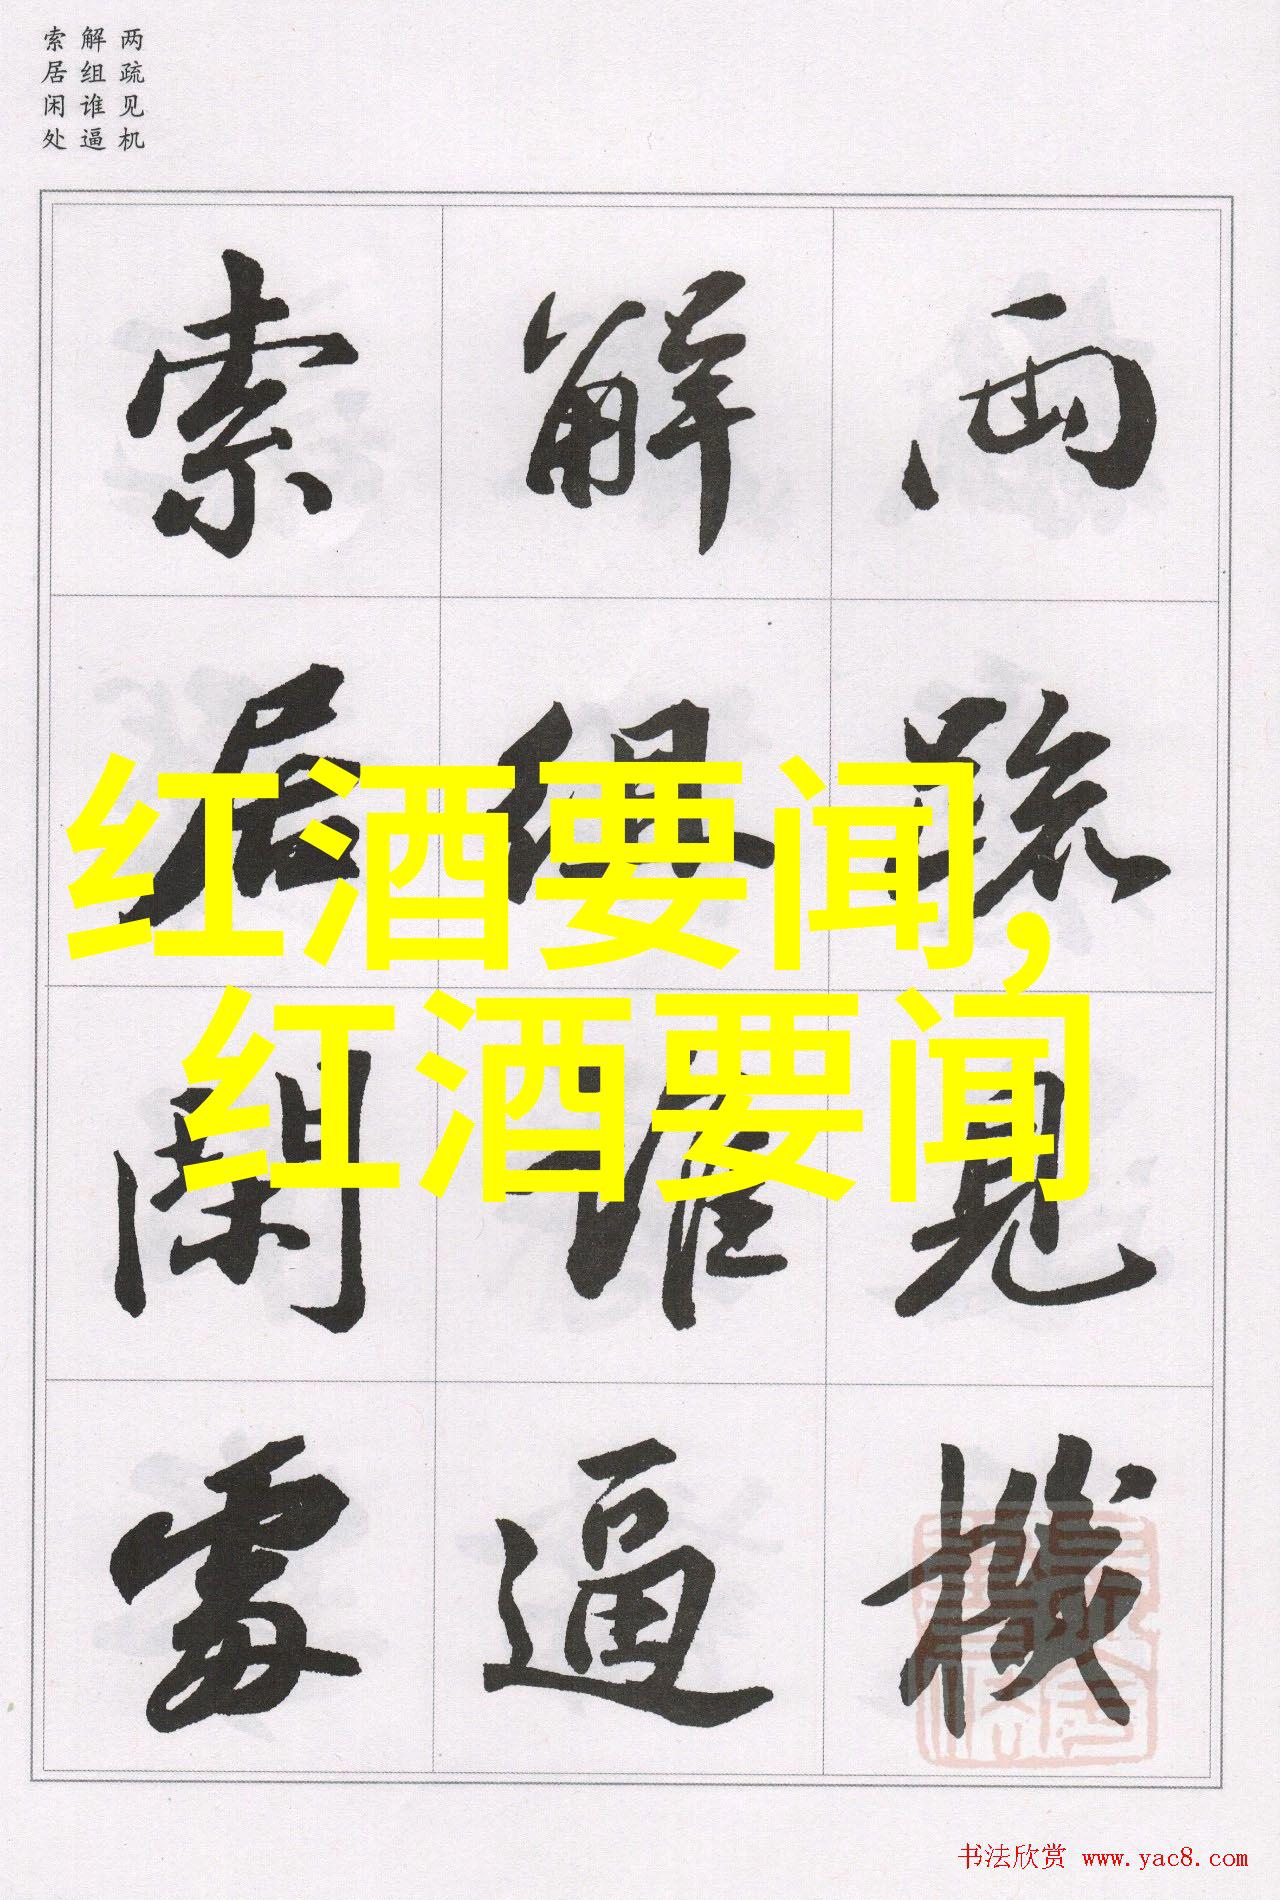 两疏见机
解组谁逼
索居闲处
兩疏見機
解組誰逼
索居閑處
红酒要闻,
红酒要闻
书法欣赏 www.yac8.com